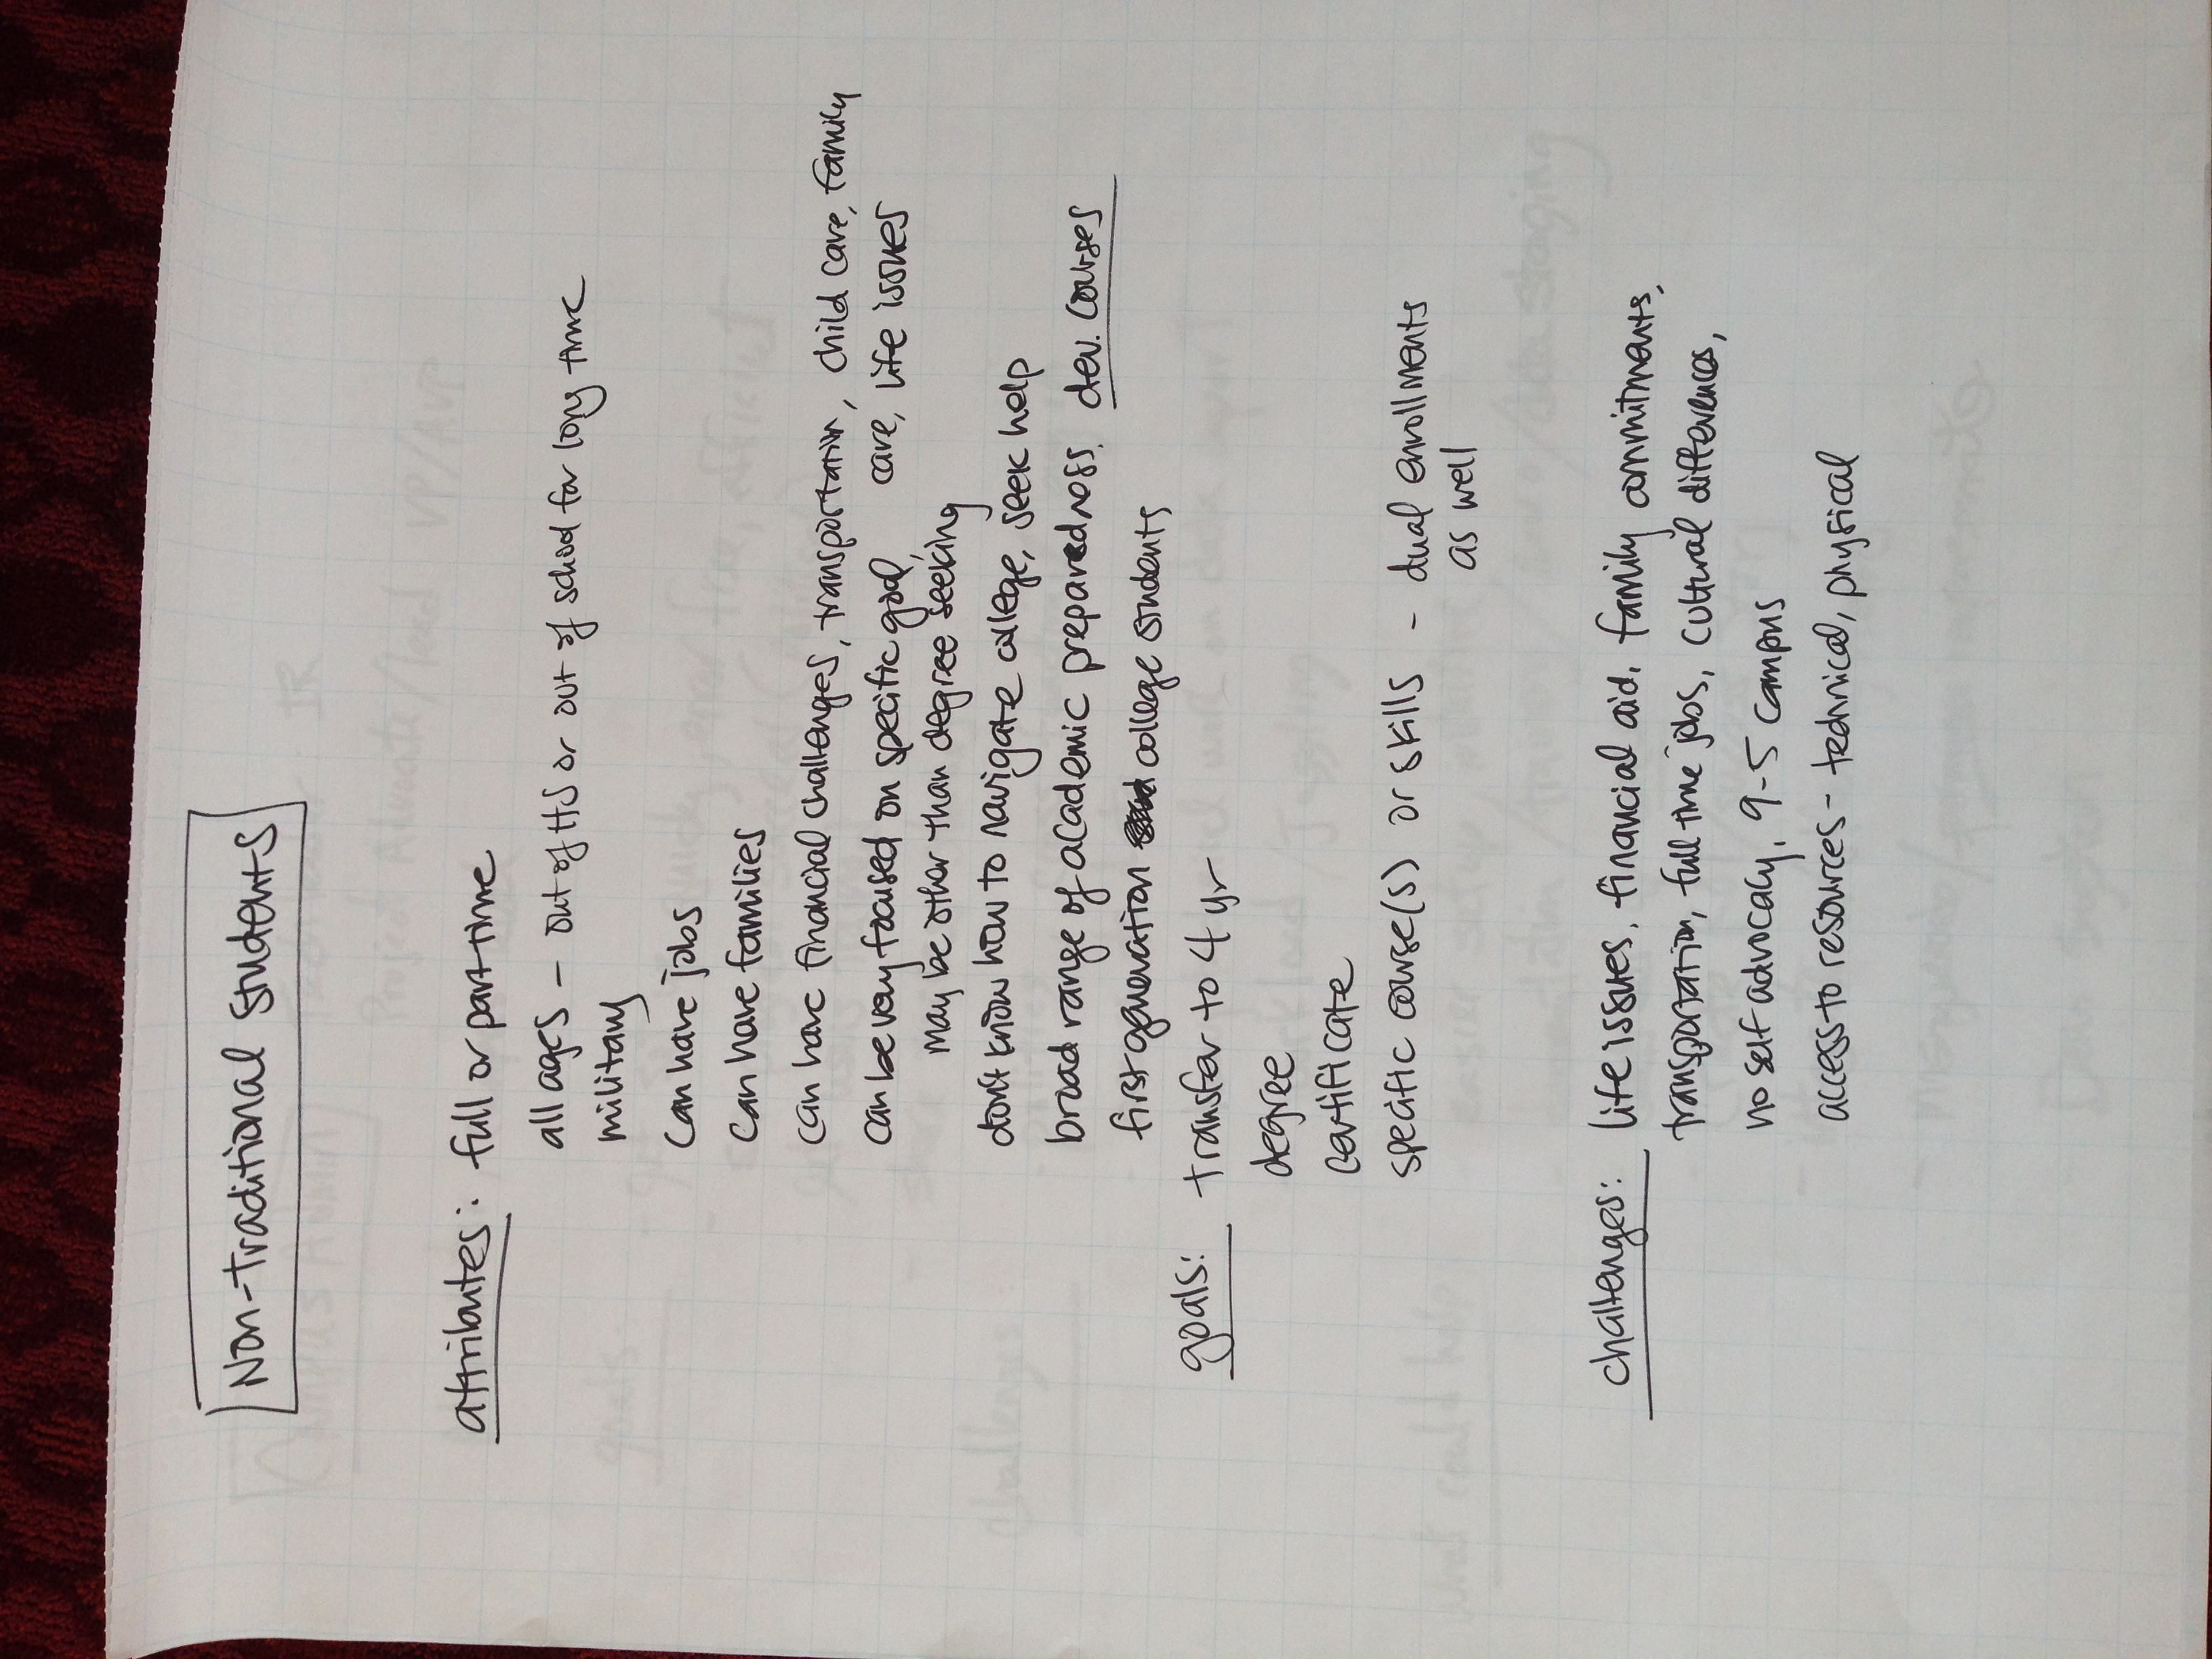 Non-Traditional Students
attributes: full or part time
all ages - out of HS or out of school for long time
military
can have jobs
can have families
can have financial challenges, transportation, child care, family
care, life issues
can be very focused on specific goal,
may be other than degree seeking
don't know how to navigate college, seek help
broad range of academic preparedness, dev. courses
first generation college students
goals: transfer to 4 yr
degree
certificate
specific course(s) or skills - dual enrollments
as well
challenges: life issues, financial aid, family commitments,
transportation, full time jobs, cultural differences,
no self advocacy, 9-5 campus
access to resources - technical, physical